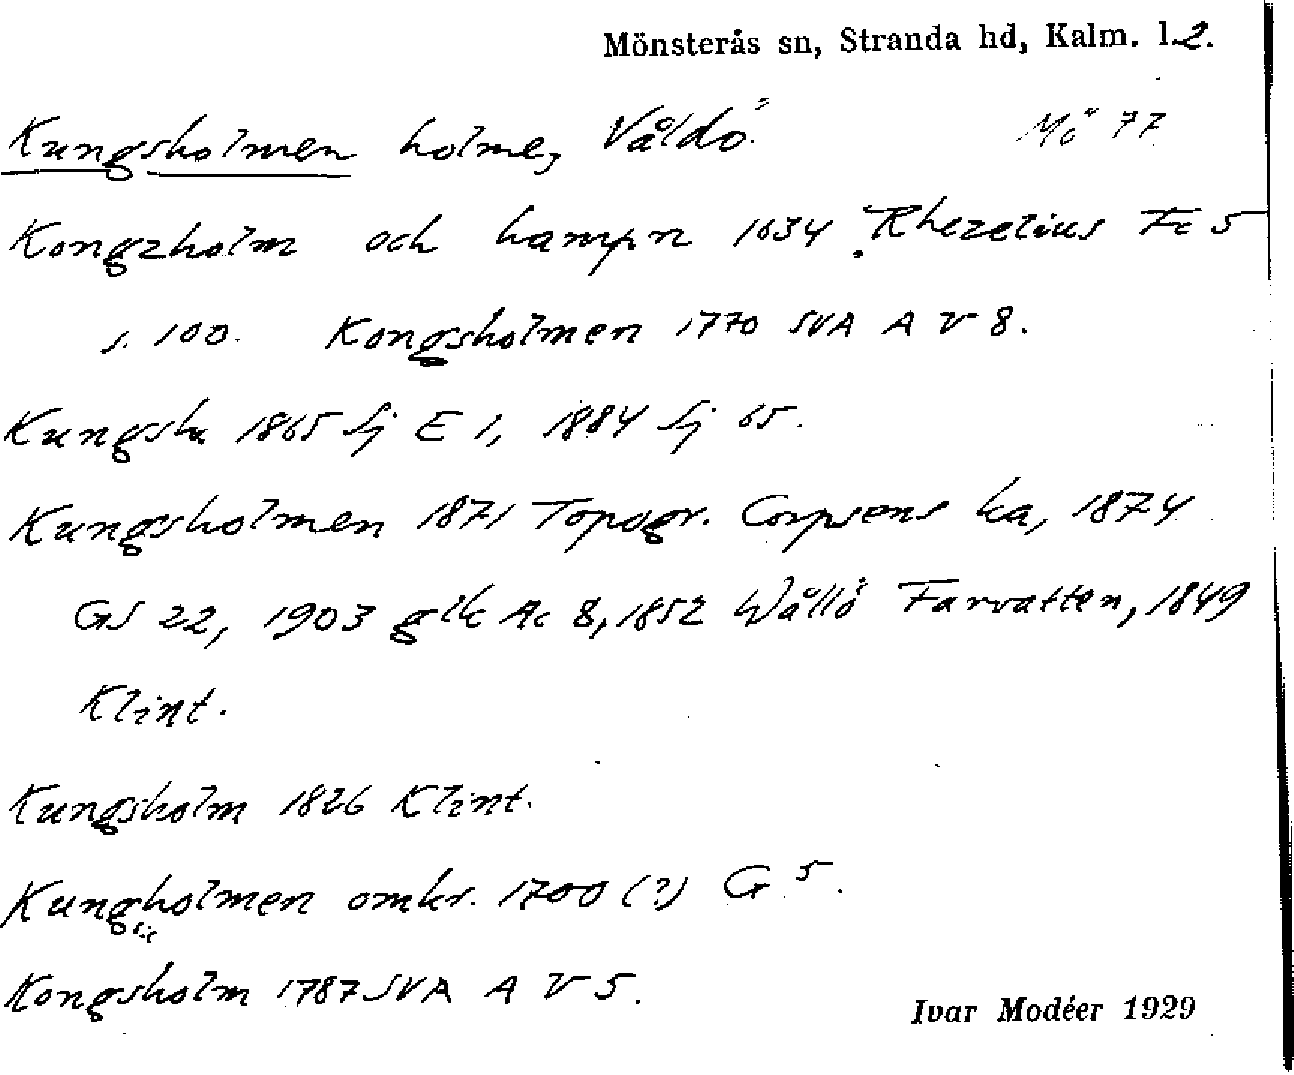 Mönsterås sn, Stranda hd, Kalm. l. 2.
Kungsholmen holme, Våldö. Mö 77
Kongzholm och hampn 1634 Rhezelius Fc 5
s. 100. Kongsholmen 1770 SVA A V 8.
Kungsh 1865 Sj E 1, 1884 Sj 65.
Kungsholmen 1871 Topogr. Corpsens ka, 1874
GS 22, 1903 glk Ac 8, 1852 Wållö Farvatten, 1849
Klint.
Kungsholm 1826 Klint.
Kungholmen omkr. 1700 (?) G 5.
Kongsholm 1787 SVA A V 5.
Ivar Modéer 1929